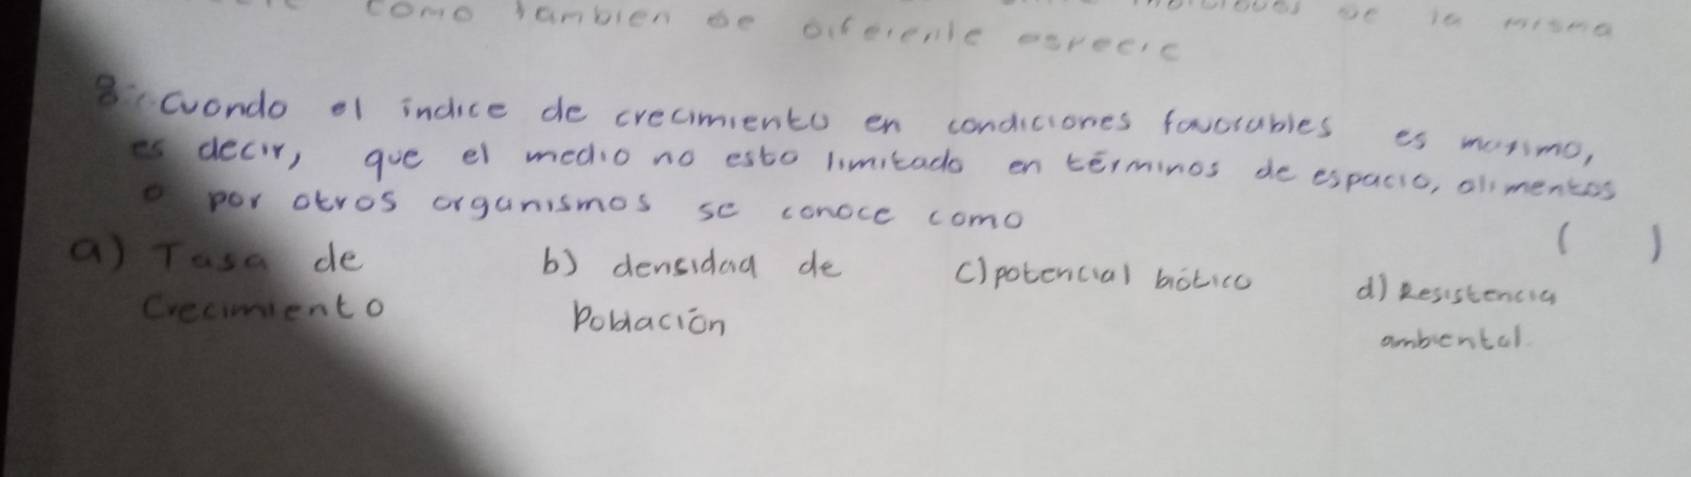 como tambien de diferente especie de la misma
8.- Cuando el indice de crecimiento en condiciones favorables es maximo,
es decir, que el medio no esta limitado en términos de espacio, alimentos
o por otros organismos se conoce como
( )
a) Tasa de b) densidad de c) potencial biótico d) Resistencia
Crecimiento Población ambiental.